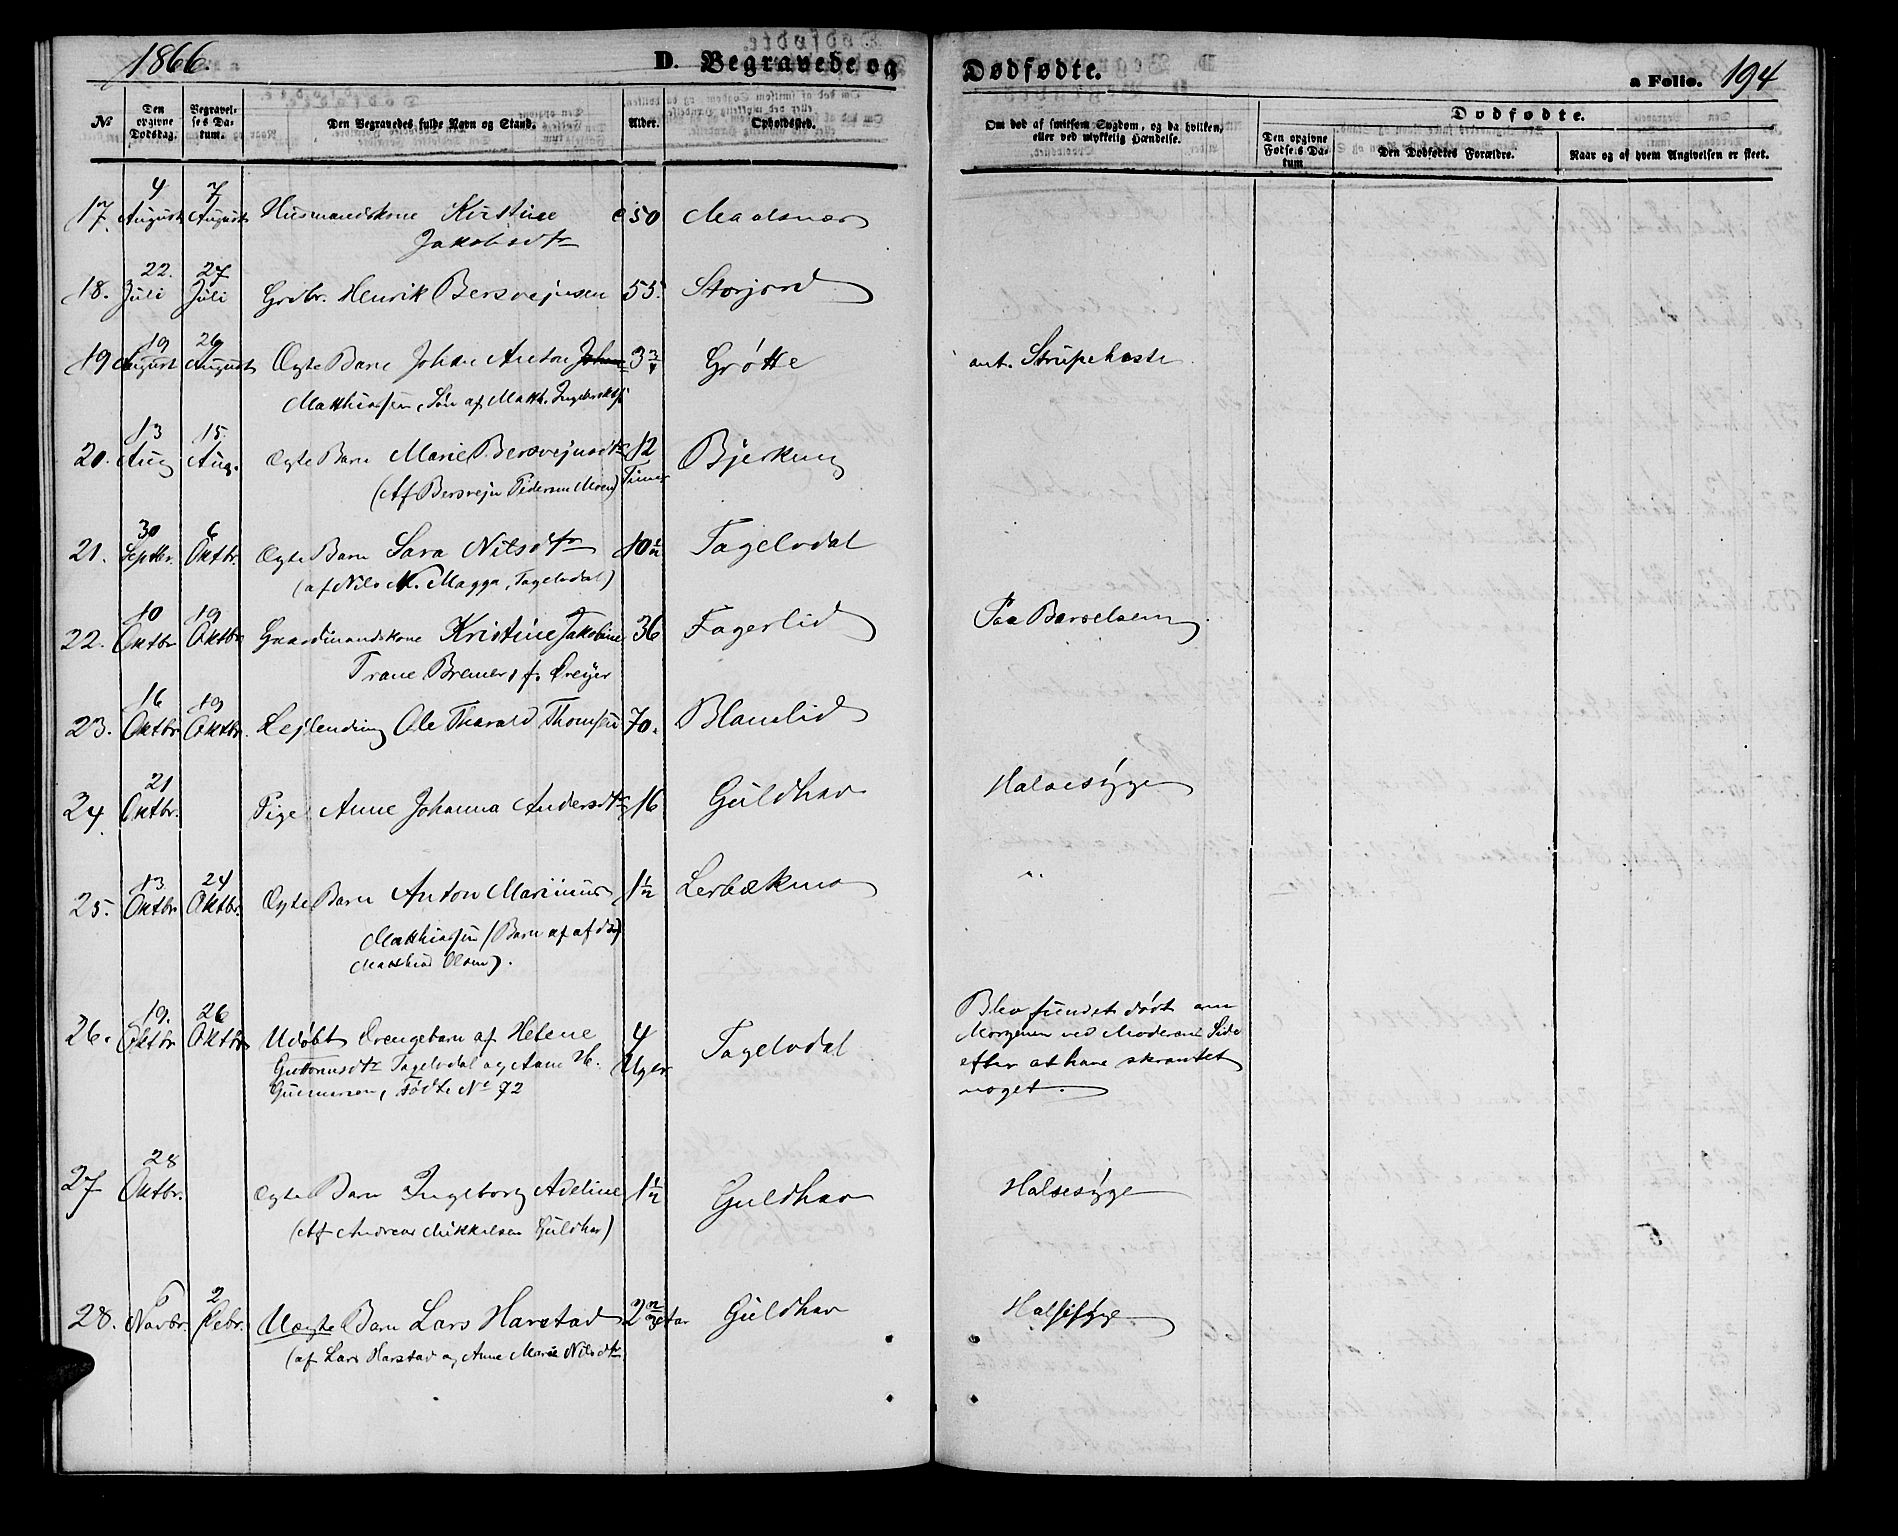 1866. D. Begravede og Dødfødte. a Folio. 194
No Den opgivne Dødsdag. Begravelses Datum. Den Begravedes fulde Navn og Stand. Alder. Opholdssted. Om død af smitsom Sygdom, og da hvilken, eller ved ulykkelig Hændelse. Dødfødte.
Den opgivne Fødsels Datum Den Dødfødtes Forældre. Naar og af hvem Angivelsen er skeet.
17. 4 August 7 August Husmandskone Kirstine 50
Jakobsdtr
18. 22. Juli 27 Juli Grdbr. Henrik Bersvejnsen 55. Storjord
19 19 August 26 August Ægte Barn Johan Anton 3 3/4 Grøtte ant. Strupehoste
Matthiassen, Søn af Matth.
20. 13 Aug 15. Aug. Ægte Barn Marie Bersvejnsdtr 12 Timer Bjerkeng
(Af Bersvejn Pedersen Moen)
21. 30 Septbr. 6 Oktbr. Ægte Barn Sara Nilsdtr 10 1/2 Tagelvdal
(af Nils N. Magga, Tagelvdal)
22. 10 Oktbr 19 Oktbr Gaardmandskone Kristine Jakobine 36 Fagerlid Paa Barselseng.
Trane Bremer, f. Dreyer
23. 16 Oktbr 19 Oktbr. Lejlending Ole Tharald Thomsen 70. Blaalid
24. 21 Oktbr. Pige Anne Johanna Andersdtr 16 Guldhav Halsesyge
25. 13 Oktbr 24 Oktbr. Ægte Barn Anton Marinius 1 1/2 Lerbækmo "
Matthiassen (Barn af afdøde
Matthias Olsen).
26. 19. Oktbr 26 Oktbr Udøbt Drengebarn af Helene 4 Uger Tagelvdal Blev fundet dødt om
Guttormsdtr Tagelvdal og Morgenen ved Moderens Side
Gunnersen, Fødte No 72 efter at have skrantet
noget.
27 28 Oktbr. Ægte Barn Ingeborg Adeline 1 1/2 Guldhav Halsesyge
(Af Andreas Mikkelsen Guldhav)
28. 6 Novbr. 2 Debr. Uægte Barn Lars Harstad 2 2/3 Aar Guldhav Halsesyge
(af Lars Harstad og Anne Marie Nilsdtr)